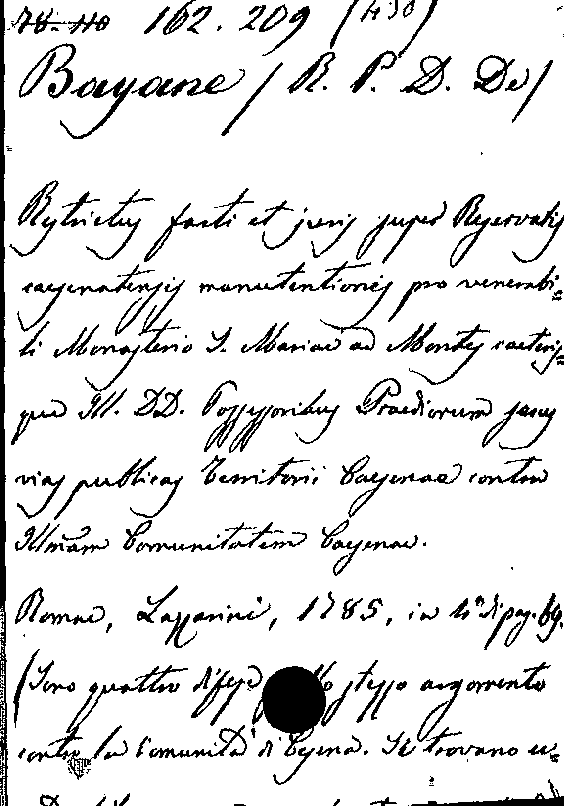 78. 110 162. 209 (430)
Bayane (R. P. D. De)
Rystrictus facti et juris super Reservatis
caesenatensis manutentionis pro venerabi=
li Monasterio S. Mariae ad Montes caeteris=
que Ill. DD. Possessoribus Praediorum secus
vias publicas Territorii Caesenae contra
Illmam Comunitatem Caesenae.
Romae, Lazzarini, 1785, in 4° di pag. 69.
(Sono quattro difese stesso argomento
contro la Comunità di Cesena. Si trovano u=